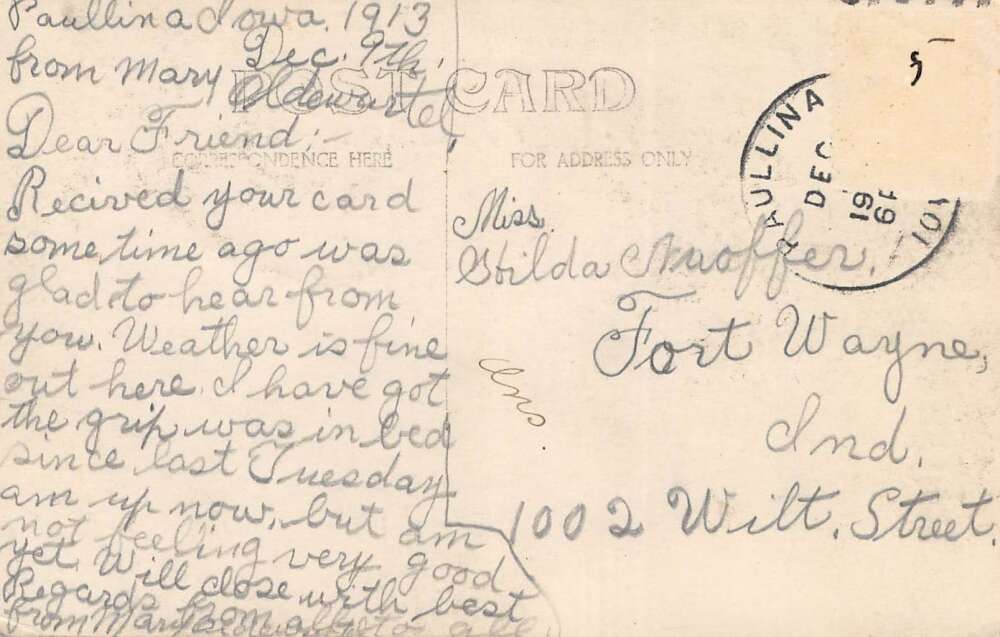 Paullina Iowa. 1913
Dec. 9th,
from Mary Oldewurtel,
POST CARD
Dear Friend;-
CORRESPONDENCE HERE
Recived your card
some time ago was
glad to hear from
you. Weather is fine
out here. I have got
the grip, was in bed
since last Tuesday
am up now, but am
not feeling very good
yet. Will close with best
Regards from all to all
from Mary
FOR ADDRESS ONLY
PAULLINA
DEC
19
IOWA
Miss.
Hilda Nuoffer,
Fort Wayne,
Ind.
1002 Wilt. Street.
Ans.